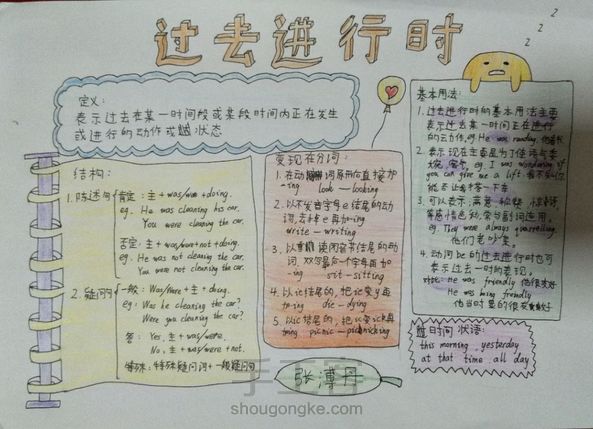 过去进行时
定义:
表示过去在某一时间段或某段时间内正在发生
或进行的动作或 状态
结构:
1. 陈述句
肯定: 主+was/were+doing.
eg. He was cleaning his car.
You were cleaning the car.
否定: 主+was/were+not+doing.
eg. He was not cleaning the car.
You were not cleaning the car.
2. 疑问句
一般: Was/Were+主+doing.
eg: Was he cleaning the car?
Were you cleaning the car?
答: Yes, 主+was/were.
No, 主+was/were+not.
特殊: 特殊疑问词+一般疑问句
变现在分词:
1. 在动词原形后直接加
-ing look — looking
2. 以不发音字母e结尾的动
词,去掉e再加-ing
write — writing
3. 以重读闭音节结尾的动
词,双写最后一个字母再加
-ing sit — sitting
4. 以ie结尾的,把ie变y再
加-ing die — dying
5. 以ic结尾的,把ic变ick再
加ing picnic — picnicking
基本用法:
1. 过去进行时的基本用法主要
表示过去某一时间正在进行
的动作. eg. He was reading.
2. 表示现在主要是为了使语气委
婉、客气. eg. I was wondering if
you can give me a lift.
能否让我搭一下车
3. 可以表示:满意、称赞、
等感情色彩,常与副词连用.
eg. They were always quarrelling.
他们老吵架.
4. 动词be的过去进行时也可
表示过去一时的表现.
He was friendly 他很友好
He was being friendly
他当时显的很友好
时间状语:
this morning, yesterday
at that time all day
张溥丹
手工客
shougongke.com
z
z
z